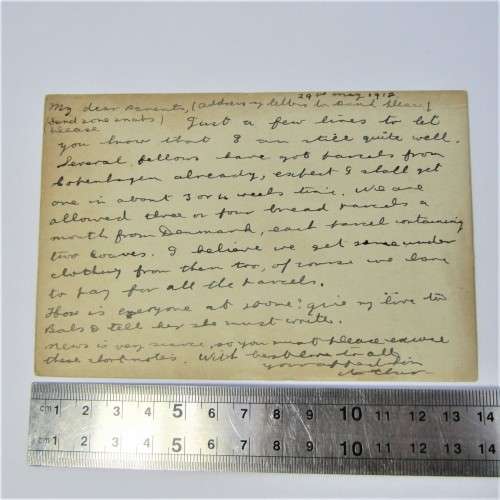 29th May 1918
My dear Parents, (address my letters to
(Send some snaps) Just a few lines to let
please
you know that I am still quite well.
Several fellows have got parcels from
Copenhagen already, expect I shall get
one in about 3 or 4 weeks time. We are
allowed three or four bread parcels a
month from Denmark, each parcel containing
two loaves. I believe we get some under
clothing from them too, of course we have
to pay for all the parcels.
How is everyone at home? give my love to
Babs & tell her she must write.
News is very scarce, so you must please excuse
these short notes. With best love to all,
your affect. son
Arthur
cm 1 2 3 4 5 6 7 8 9 10 11 12 13 14
cm 1 2 3 4 5 6 7 8 9 10 11 12 13 14